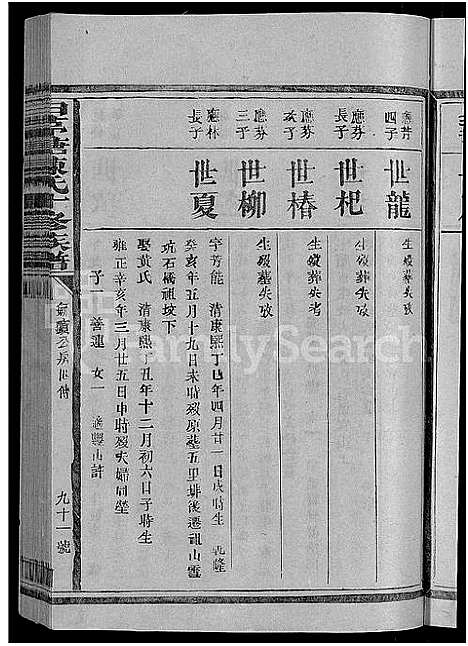 應芬
四子
世龍
生歿葬失攷
應芬
長子
世杞
生歿葬失攷
應芬
次子
世椿
生歿葬失考
應芬
三子
世柳
生歿葬失攷
應林
長子
世夏
字芳能 清康熙丁巳年四月廿一日戌時生 乾隆
癸亥年五月十九日未時歿原墓五里排後遷祖山
坑石橋祖坟下
娶黃氏 清康熙 丑年十二月初六日子時生
雍正辛亥年三月廿五日申時歿夫婦同塋
子一 善連 女一 適 山許
陳氏十修族譜
九十一號
FamilySearch